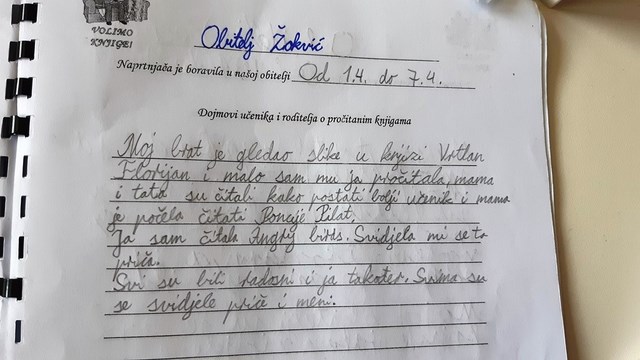 VOLIMO
KNJIGE!
Obitelj Žokvić
Naprtnjača je boravila u našoj obitelji Od 1.4. do 7.4.
Dojmovi učenika i roditelja o pročitanim knjigama
Moj brat je gledao slike u knjizi Vrtlan
Florijan i malo sam mu ja pročitala, mama
i tata su čitali kako postati bolji učenik i mama
je počela čitati Poncije Pilat.
Ja sam čitala Angry birds. Svidjela mi se ta
priča.
Svi su bili radosni i ja također. Svima su
se svidjele priče i meni.